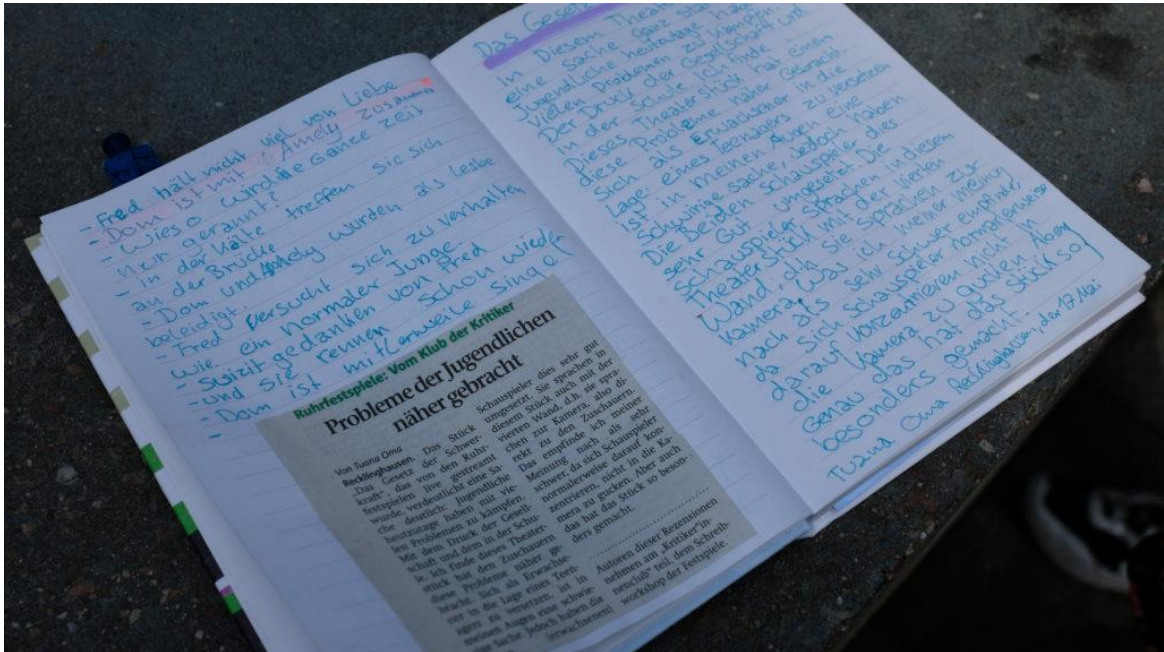 - Fred hält nicht viel von Liebe
- Dom ist mit Amely zusamm
- Wieso wird die Ganze zeit
nur gerannt?
- in der hälte treffen sie sich
an der Brücke
- Dom und Amely wurden als lesbe
beleidigt
- Fred versucht sich zu verhalten
wie ein normaler Junge.
- suizit gedanken von Fred
- und sie rennen schon wieder
- Dom ist mitlerweile singel
-
Ruhrfestspiele: Vom Klub der Kritiker
Probleme der Jugendlichen
näher gebracht
Von Tuana Oma
Recklinghausen. Das Stück
„Das Gesetz der Schwer-
kraft“, das von den Ruhr-
festspielen live gestreamt
wurde, verdeutlicht eine Sa-
che deutlich: Jugendliche
heutzutage haben mit vie-
len Problemen zu kämpfen.
Mit dem Druck der Gesell-
schaft und dem in der Schu-
le. Ich finde dieses Theater-
stück hat den Zuschauern
diese Probleme näher ge-
bracht. Sich als Erwachse-
ner in die Lage einer Teen-
agers zu versetzen, ist in
meinen Augen eine schwie-
rige Sache. Jedoch haben die
(erwachsenen)
Schauspieler dies sehr gut
umgesetzt. Sie sprachen in
diesem Stück auch mit der
vierten Wand, d.h. sie spra-
chen zur Kamera, also di-
rekt zu den Zuschauern.
Das empfinde ich meiner
Meinung nach als sehr
schwer, da sich Schauspieler
normalerweise darauf kon-
zentrieren, nicht in die Ka-
mera zu gucken. Aber auch
das hat das Stück so beson-
ders gemacht.
Autoren dieser Rezensionen
nehmen am „Kritiker“in-
nenclub“ teil, dem Schreib-
workshop der Festspiele.
Das Gesetz
In Diesem Theater
eine sache Ganz
Jugendliche heutzutage
Vielen problemen zu kämpfen.
Der Druck der Gesellschaft und
in der Schule. Ich finde
Dieses Theaterstück hat einen
diese Probleme näher Gebracht
Sich als Erwachsner in die
Lage eines Teenagers zu versetzen
ist in meinen Augen eine
Schwirige sache, Jedoch haben
Die Beiden Schauspieler dies
sehr Gut umgesetzt. Die
Schauspieler sprachen in diesem
Theaterstück mit der vierten
Wand, d.h sie sprachen zur
Kamera. Was ich meiner meinung
nach als sehr schwer empfinde,
da sich Schauspieler normalerweise
darauf konzentrieren nicht in
die Kamera zu gucken. Aber
Genau das hat das Stück so
besonders gemacht.
Tuana Oma Recklinghausen, der 17. Mai